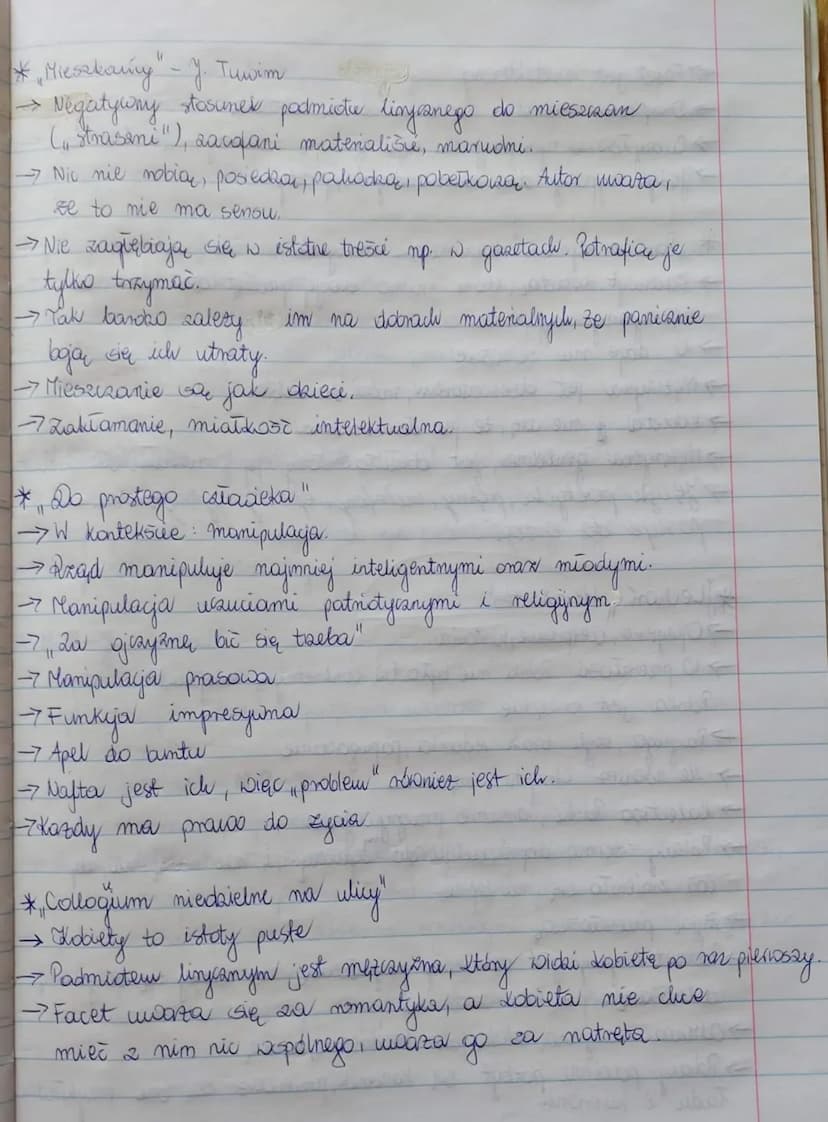 * „Mieszkańcy" - J. Tuwim
→ Negatywny stosunek podmiotu lirycznego do mieszczan
(„straszni"), zacofani materialiści, marudni.
→ Nic nie robią, posiedzą, pochodzą, pobełkoczą. Autor uważa,
że to nie ma sensu.
→ Nie zagłębiają się w istotne treści np. w gazetach. Potrafią je
tylko trzymać.
→ Tak bardzo zależy im na dobrach materialnych, że panicznie
boją się ich utraty.
→ Mieszczanie są jak dzieci.
→ Zakłamanie, miałkość intelektualna.
* „Do prostego człowieka"
→ W kontekście: manipulacja.
→ Rząd manipuluje najmniej inteligentnymi oraz młodymi.
→ Manipulacja uczuciami patriotycznymi i religijnym.
→ „Za ojczyznę bić się trzeba"
→ Manipulacja prasowa
→ Funkcja impresywna
→ Apel do buntu
→ Nafta jest ich, więc „problem" również jest ich.
→ Każdy ma prawo do życia
* „Colloqium niedzielne na ulicy"
→ Kobiety to istoty puste
→ Podmiotem lirycznym jest mężczyzna, który widzi kobietę po raz pierwszy.
→ Facet uważa się za romantyka, a kobieta nie chce
mieć z nim nic wspólnego, uważa go za natręta.